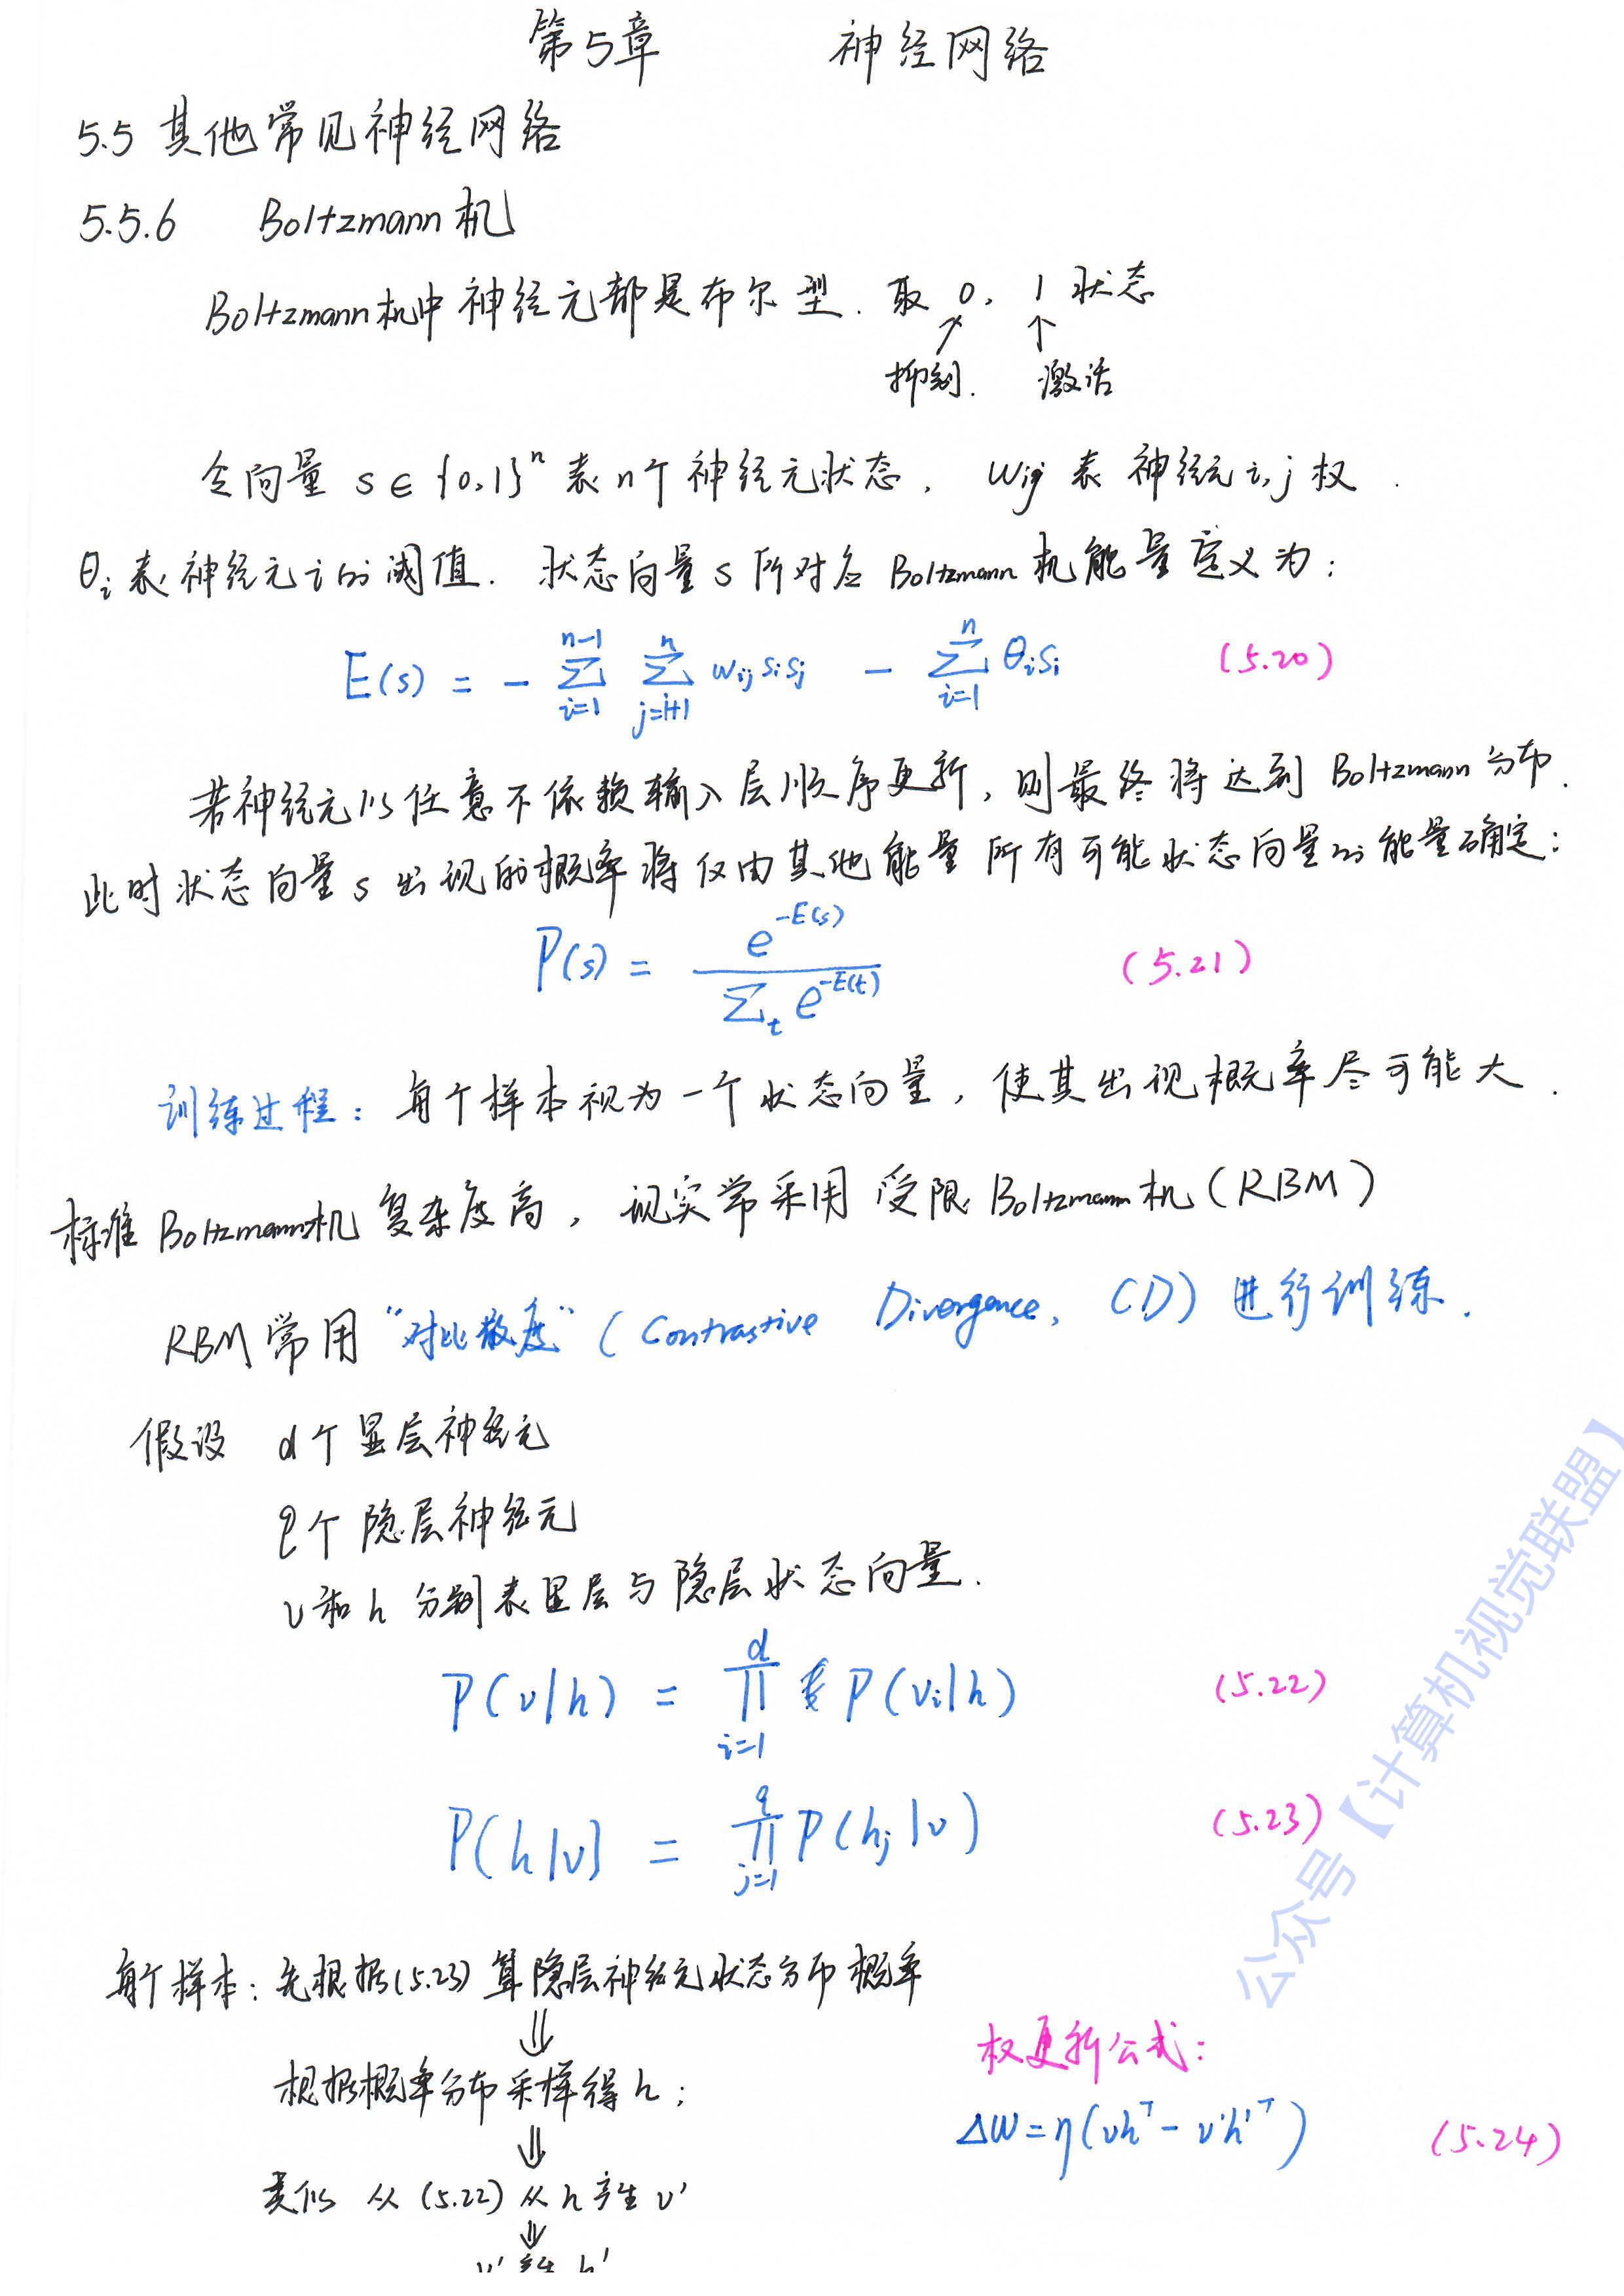 第5章 神经网络
5.5 其他常见神经网络
5.5.6 Boltzmann机
Boltzmann机中神经元都是布尔型. 取 0, 1 状态
↗ ↑
抑制. 激活
令向量 s ∈ {0,1}ⁿ 表n个神经元状态, wij 表 神经元i,j权.
θi表神经元i的阈值. 状态向量s所对应Boltzmann机能量定义为:
E(s) = - ∑_{i=1}^{n-1} ∑_{j=i+1}^{n} wij si sj - ∑_{i=1}^{n} θi si (5.20)
若神经元以任意不依赖输入层顺序更新, 则最终将达到Boltzmann分布.
此时状态向量s出现的概率将仅由其他能量所有可能状态向量的能量确定:
P(s) = e^{-E(s)} / ∑_t e^{-E(t)} (5.21)
训练过程: 每个样本视为一个状态向量, 使其出现概率尽可能大.
标准Boltzmann机复杂度高, 现实常采用受限Boltzmann机(RBM)
RBM常用“对比散度”(Contrastive Divergence, CD)进行训练.
假设 d个显层神经元
q个隐层神经元
v和h分别表显层与隐层状态向量.
P(v|h) = ∏_{i=1}^{d} P(vi|h) (5.22)
P(h|v) = ∏_{j=1}^{q} P(hj|v) (5.23)
每个样本: 先根据(5.23)算隐层神经元状态分布概率
⇓
根据概率分布采样得h;
⇓
类似 从(5.22)从h产生v'
⇓
v'产生h'
权更新公式:
ΔW = η(vhᵀ - v'h'ᵀ) (5.24)
公众号【计算机视觉联盟】